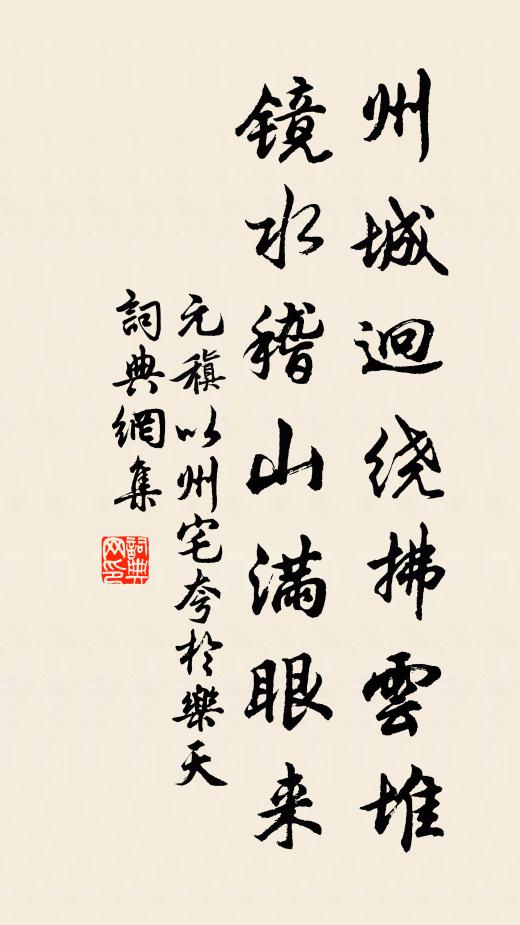 州城迥绕拂雲堆
镜水稽山满眼来
元稹以州宅夸於樂天
詞典網集
詞典网印